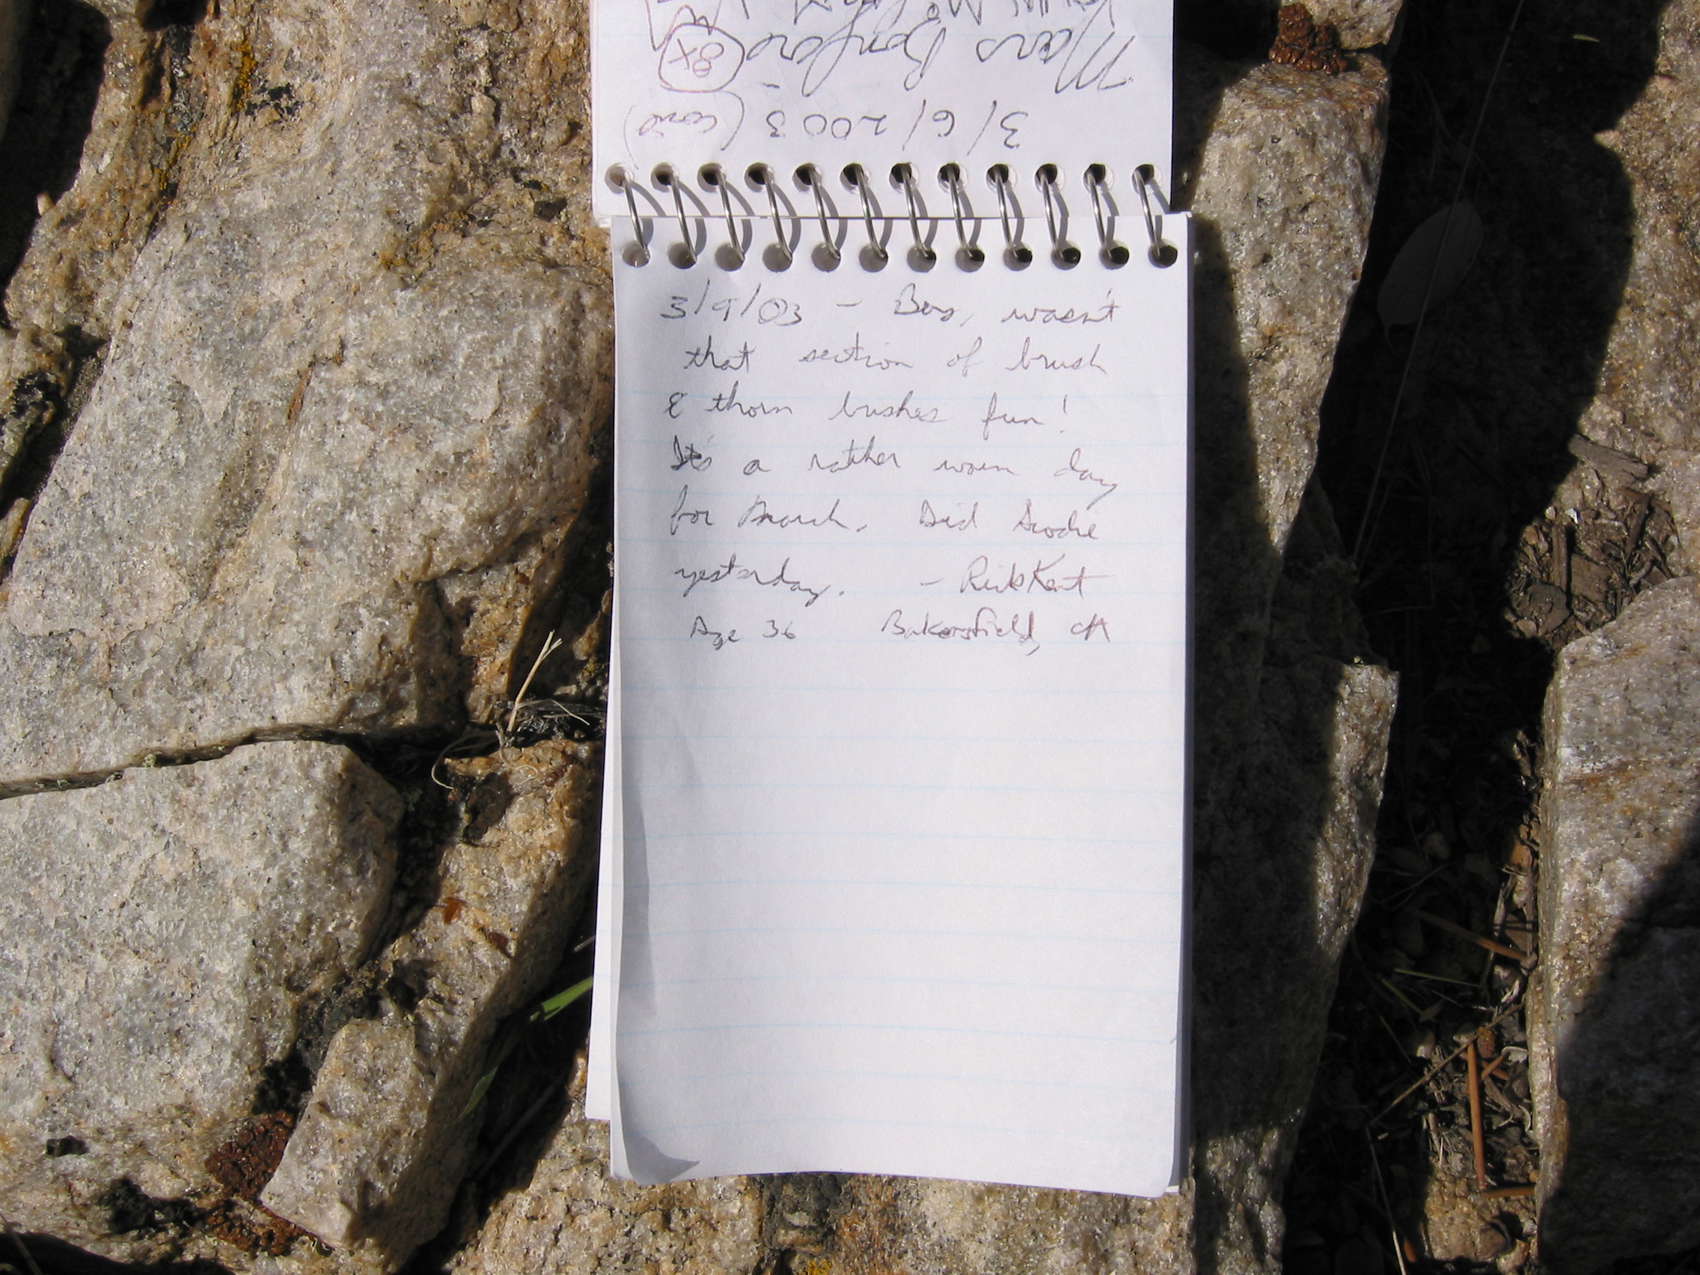 Mars Bonfire 8X
3/6/2003 (cont)
3/9/03 - Boy, wasn't
that section of brush
& thorn bushes fun!
It's a rather warm day
for March. Did Scodie
yesterday. - Rick Kent
Age 36 Bakersfield, CA